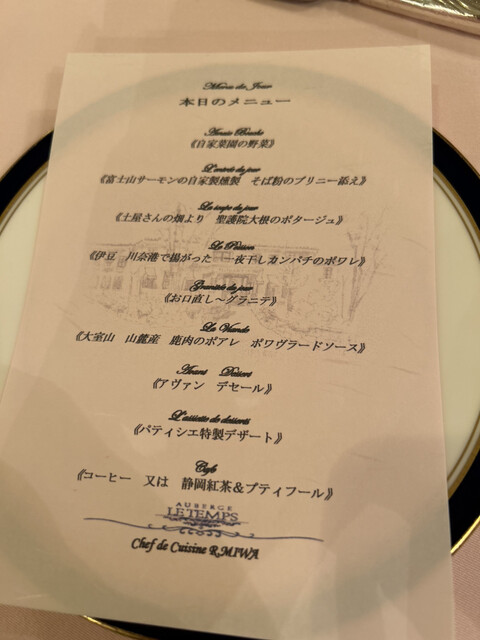 Menu du Jour
本日のメニュー
Amuse Bouche
《自家菜園の野菜》
L'entrée du jour
《富士山サーモンの自家製燻製 そば粉のブリニー添え》
La soupe du jour
《土屋さんの畑より 聖護院大根のポタージュ》
Le Poisson
《伊豆 川奈港で揚がった 一夜干しカンパチのポワレ》
Granité du jour
《お口直し～グラニテ》
La Viande
《大室山 山麓産 鹿肉のポアレ ポワヴラードソース》
Avant Dessert
《アヴァン デセール》
L'assiette de desserts
《パティシエ特製デザート》
Cafe
《コーヒー 又は 静岡紅茶＆プティフール》
AUBERGE
LE TEMPS
Chef de Cuisine R.MIWA